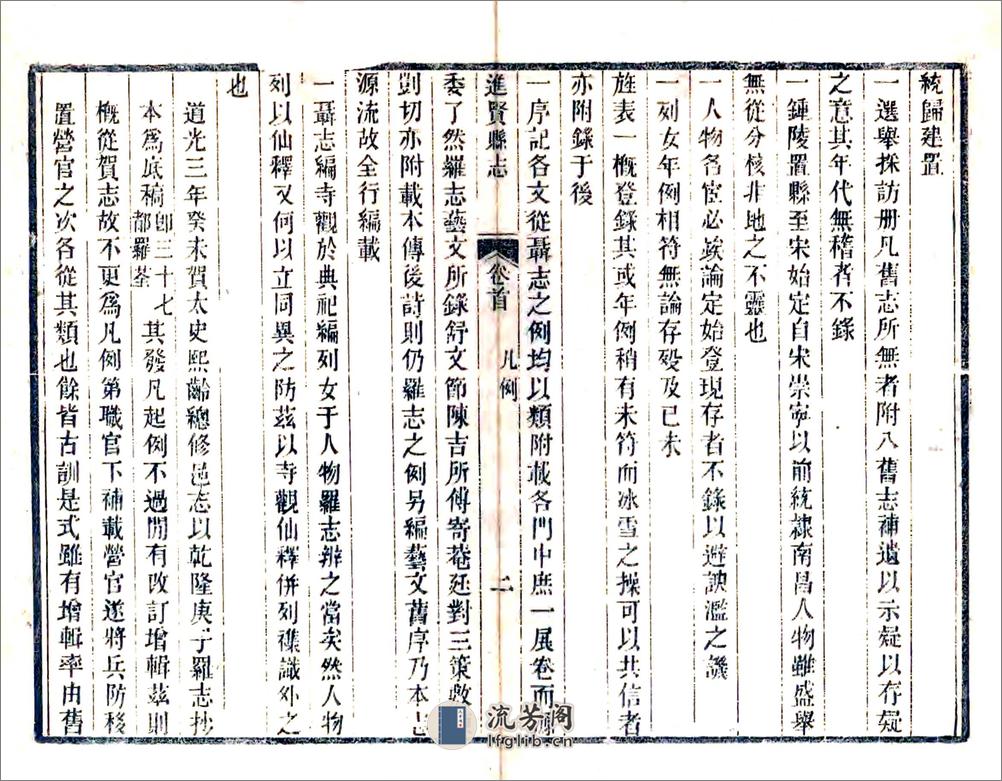 統歸建置
一選舉採訪册凡舊志所無者附入舊志補遺以示疑以存疑
之意其年代無稽者不錄
一鍾陵置縣至宋始定自宋崇寧以前統隸南昌人物雖盛舉
無從分核非地之不靈也
一人物名宦必俟論定始登現存者不錄以避諛濫之譏
一列女年例相符無論存殁及已未
旌表一槪登錄其或年例稍有未符而冰雪之操可以共信者
亦附錄于後
一序記各文從聶志之例均以類附載各門中庶一展卷而源
進賢縣志
卷首
凡例
二
委了然羅志藝文所錄舒文節陳吉所傅寄菴廷對三策敷
剴切亦附載本傳後詩則仍羅志之例另編藝文舊序乃本志
源流故全行編載
一聶志編寺觀於典祀編列女于人物羅志辨之當矣然人物
列以仙釋又何以立同異之防茲以寺觀仙釋併列襍識外之
也
道光三年癸未賀太史熙齡總修邑志以乾隆庚子羅志抄
本爲底稿卽三十七都羅荃其發凡起例不過間有改訂增輯茲則
槪從賀志故不更爲凡例第職官下補載營官遂將兵防移
置營官之次各從其類也餘皆古訓是式雖有增輯率由舊
流芳阁
lfglib.cn